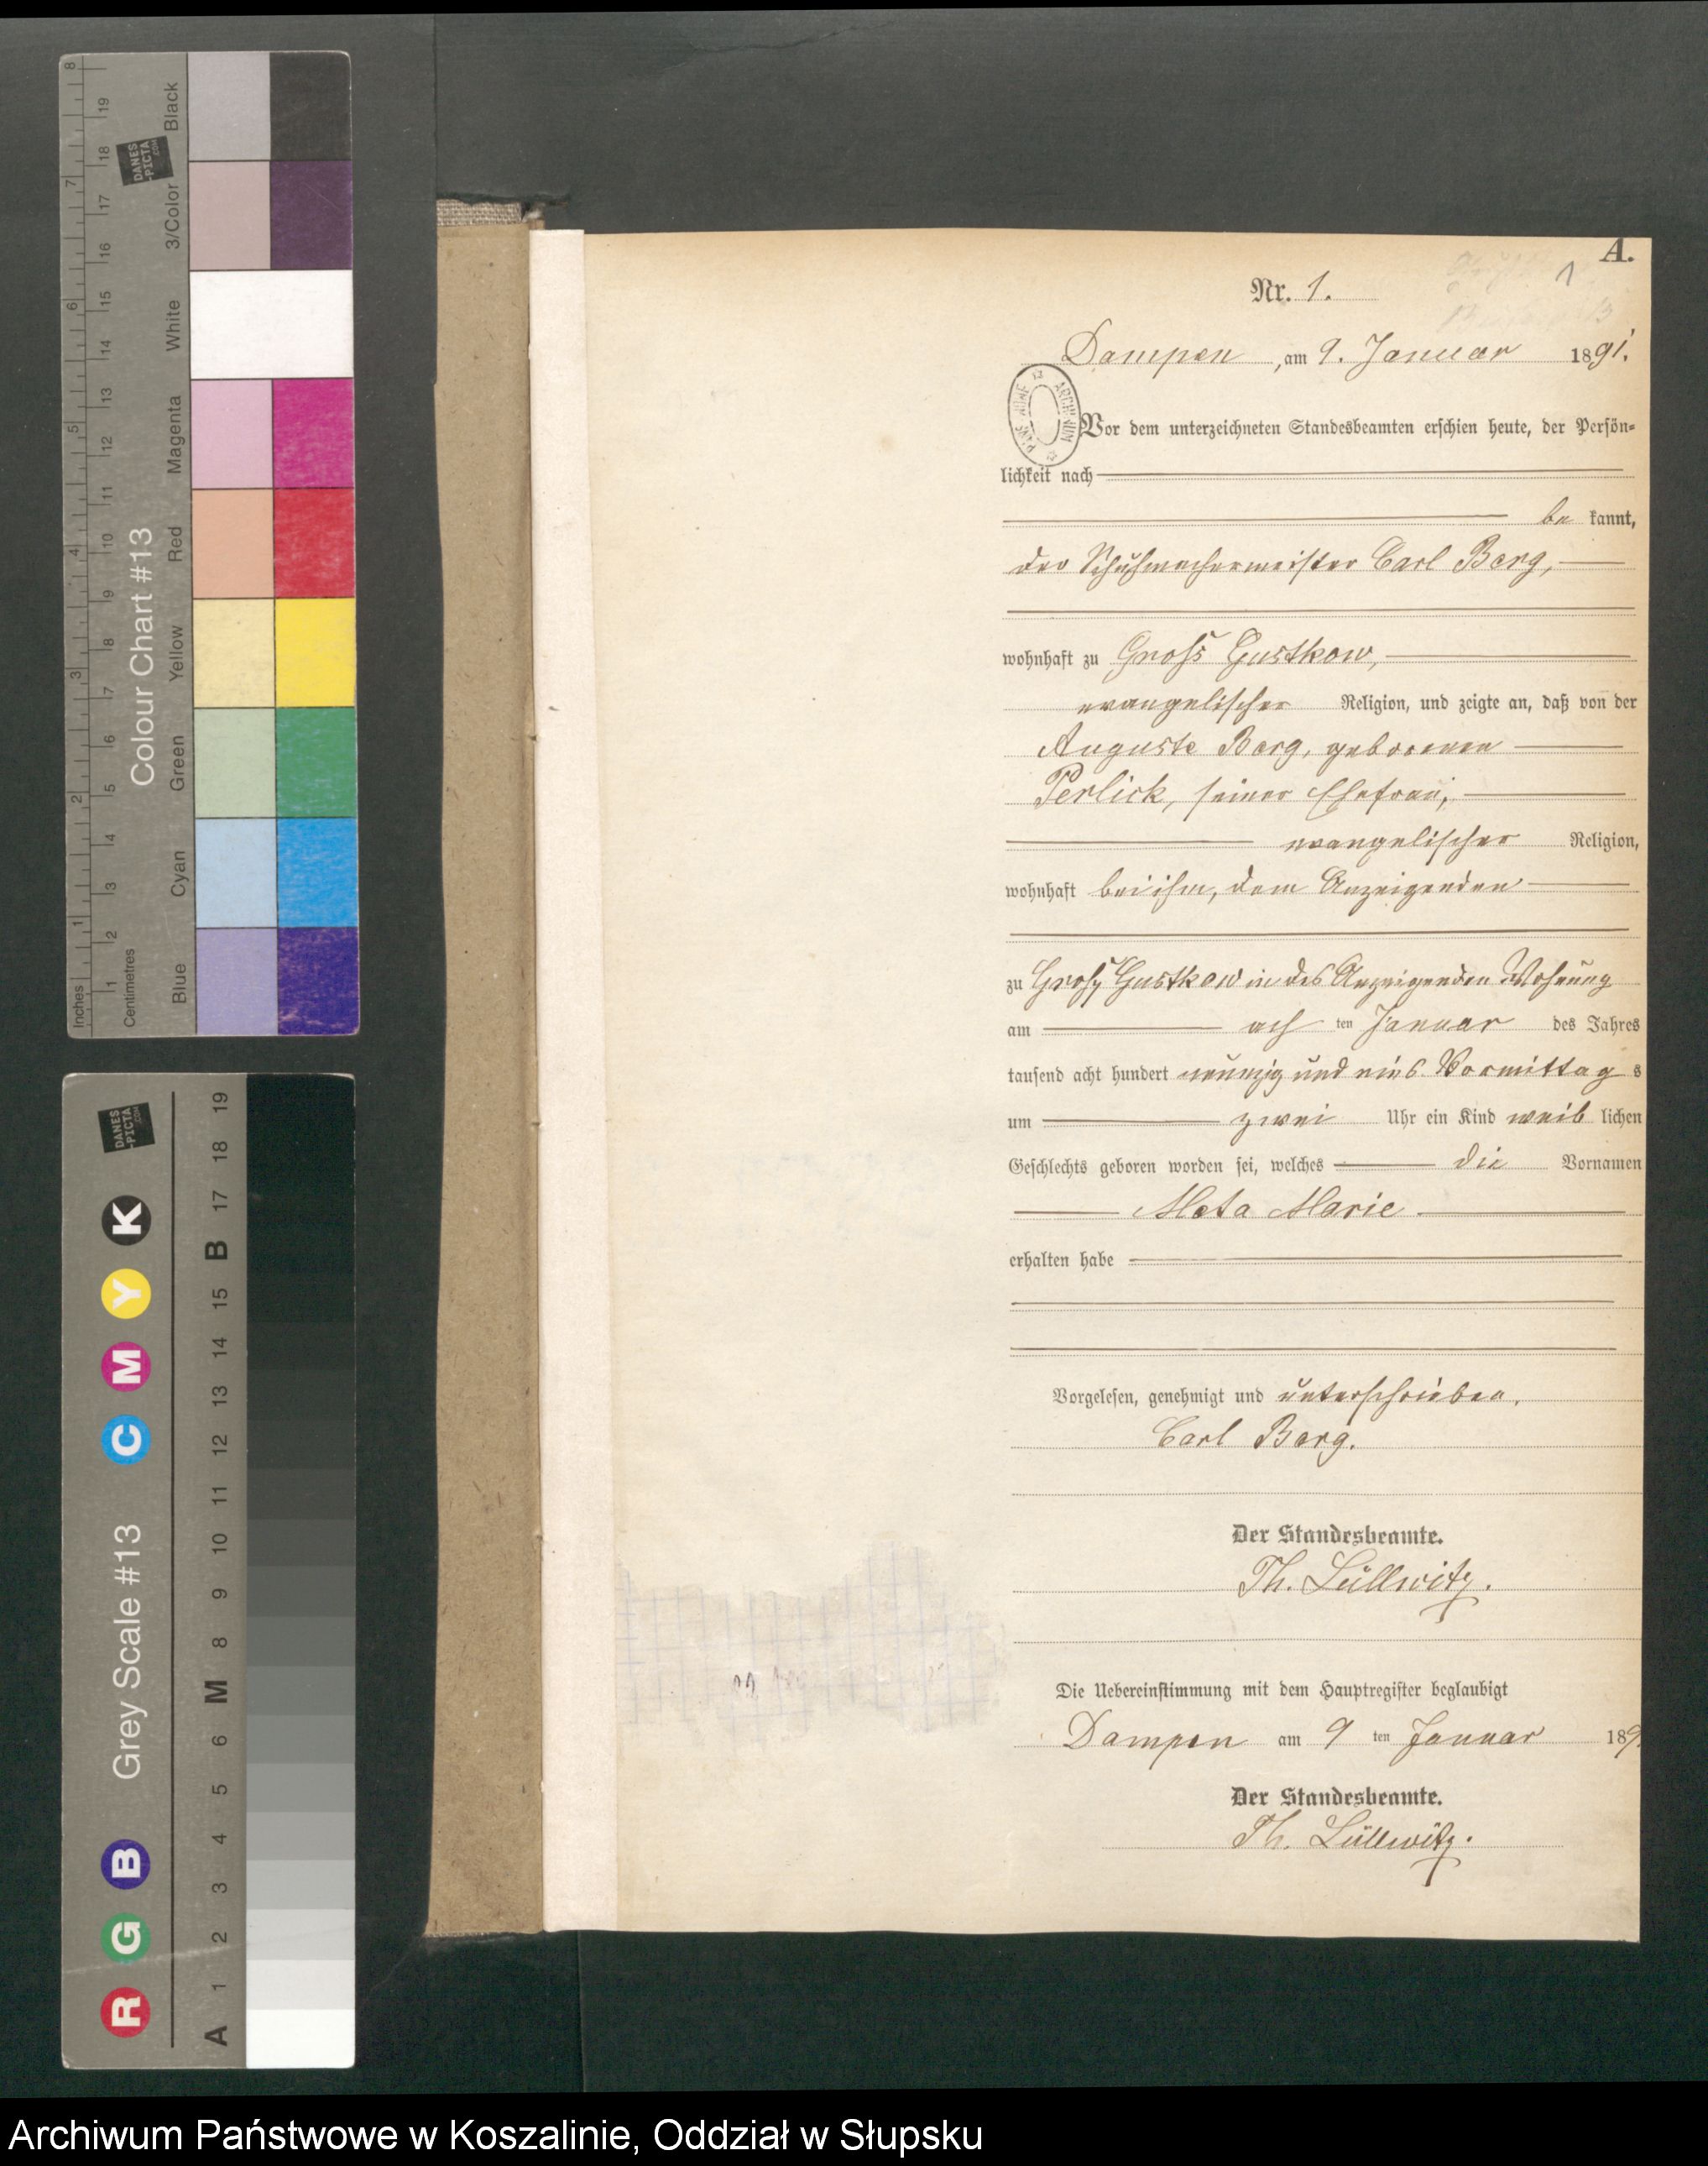 A.
1
Nr. 1.
Dampen, am 9. Januar 1891.
Vor dem unterzeichneten Standesbeamten erschien heute, der Persön-
lichkeit nach
be kannt,
der Schuhmachermeister Carl Berg,
wohnhaft zu Gross Gustkow,
evangelischer Religion, und zeigte an, daß von der
Auguste Berg, geborenen
Perlick, seiner Ehefrau,
evangelischer Religion,
wohnhaft bei ihm, dem Anzeigenden
zu Gross Gustkow in des Anzeigenden Wohnung
am ach ten Januar des Jahres
tausend acht hundert neunzig und eins Vormittag s
um zwei Uhr ein Kind weib lichen
Geschlechts geboren worden sei, welches die Vornamen
Meta Marie
erhalten habe
Vorgelesen, genehmigt und unterschrieben.
Carl Berg.
Der Standesbeamte.
Th. Lüllwitz.
Die Uebereinstimmung mit dem Hauptregister beglaubigt
Dampen am 9 ten Januar 189
Der Standesbeamte.
Th. Lüllwitz.
Colour Chart #13
Inches
Centimetres
Blue Cyan Green Yellow Red Magenta White 3/Color Black
1 2 3 4 5 6 7 8
1 2 3 4 5 6 7 8 9 10 11 12 13 14 15 16 17 18 19
DANES
-PICTA
.COM
Grey Scale #13
R G B C M Y K
A 1 2 3 4 5 6 M 8 9 10 11 12 13 14 15 B 17 18 19
DANES
-PICTA
.COM
Archiwum Państwowe w Koszalinie, Oddział w Słupsku